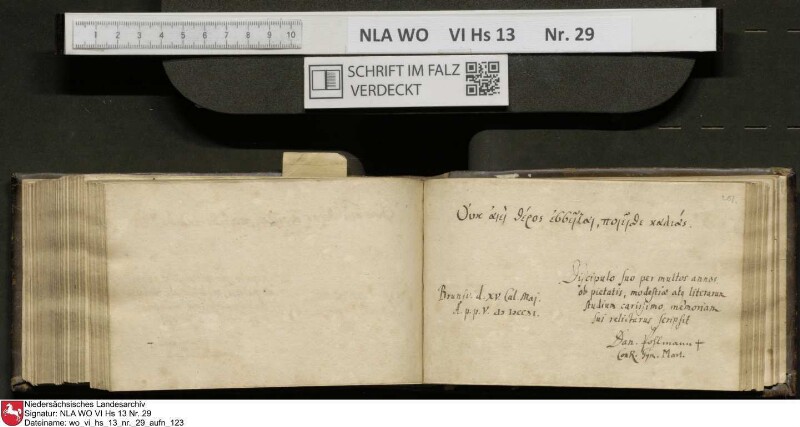 1 2 3 4 5 6 7 8 9 10
NLA WO VI Hs 13 Nr. 29
SCHRIFT IM FALZ
VERDECKT
Οὐκ ἀιεὶ θέρος ἐσσεῖται, ποιεῖσθε καλιάς.
Discipulo suo per multos annos
ob pietatis, modestiæ atq literarum
studium carissimo, memoriam
sui relicturus scripsit
Brunsv. d. XV Cal. Maj.
A. p. p. V.
Dan.
ConR. Gym. Mart.
Niedersächsisches Landesarchiv
Signatur: NLA WO VI Hs 13 Nr. 29
Dateiname: wo_vi_hs_13_nr._29_aufn_123